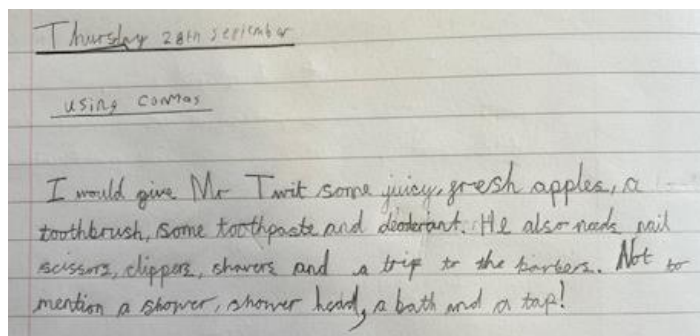 Thursday 28th September
using commas
I would give Mr Twit some juicy, fresh apples, a
toothbrush, some toothpaste and deoterant. He also needs nail
scissors, clippers, shavers and a trip to the barbers. Not to
mention a shower, shower head, a bath and a tap!